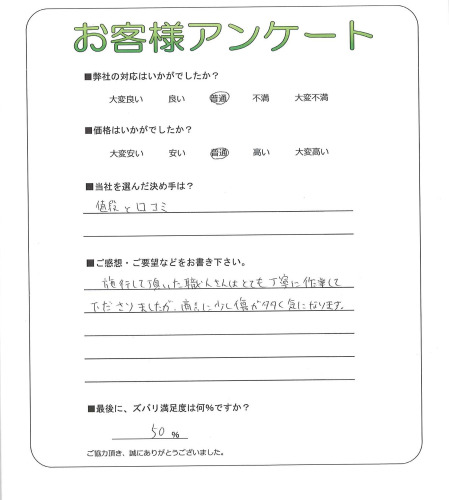 お客様アンケート
■弊社の対応はいかがでしたか？
大変良い 良い 普通 不満 大変不満
■価格はいかがでしたか？
大変安い 安い 普通 高い 大変高い
■当社を選んだ決め手は？
値段と口コミ
■ご感想・ご要望などをお書き下さい。
施行して頂いた職人さんはとても丁寧に作業して
下ださりましたが、商品に少し傷が多々く気になります。
■最後に、ズバリ満足度は何％ですか？
50 ％
ご協力頂き、誠にありがとうございました。